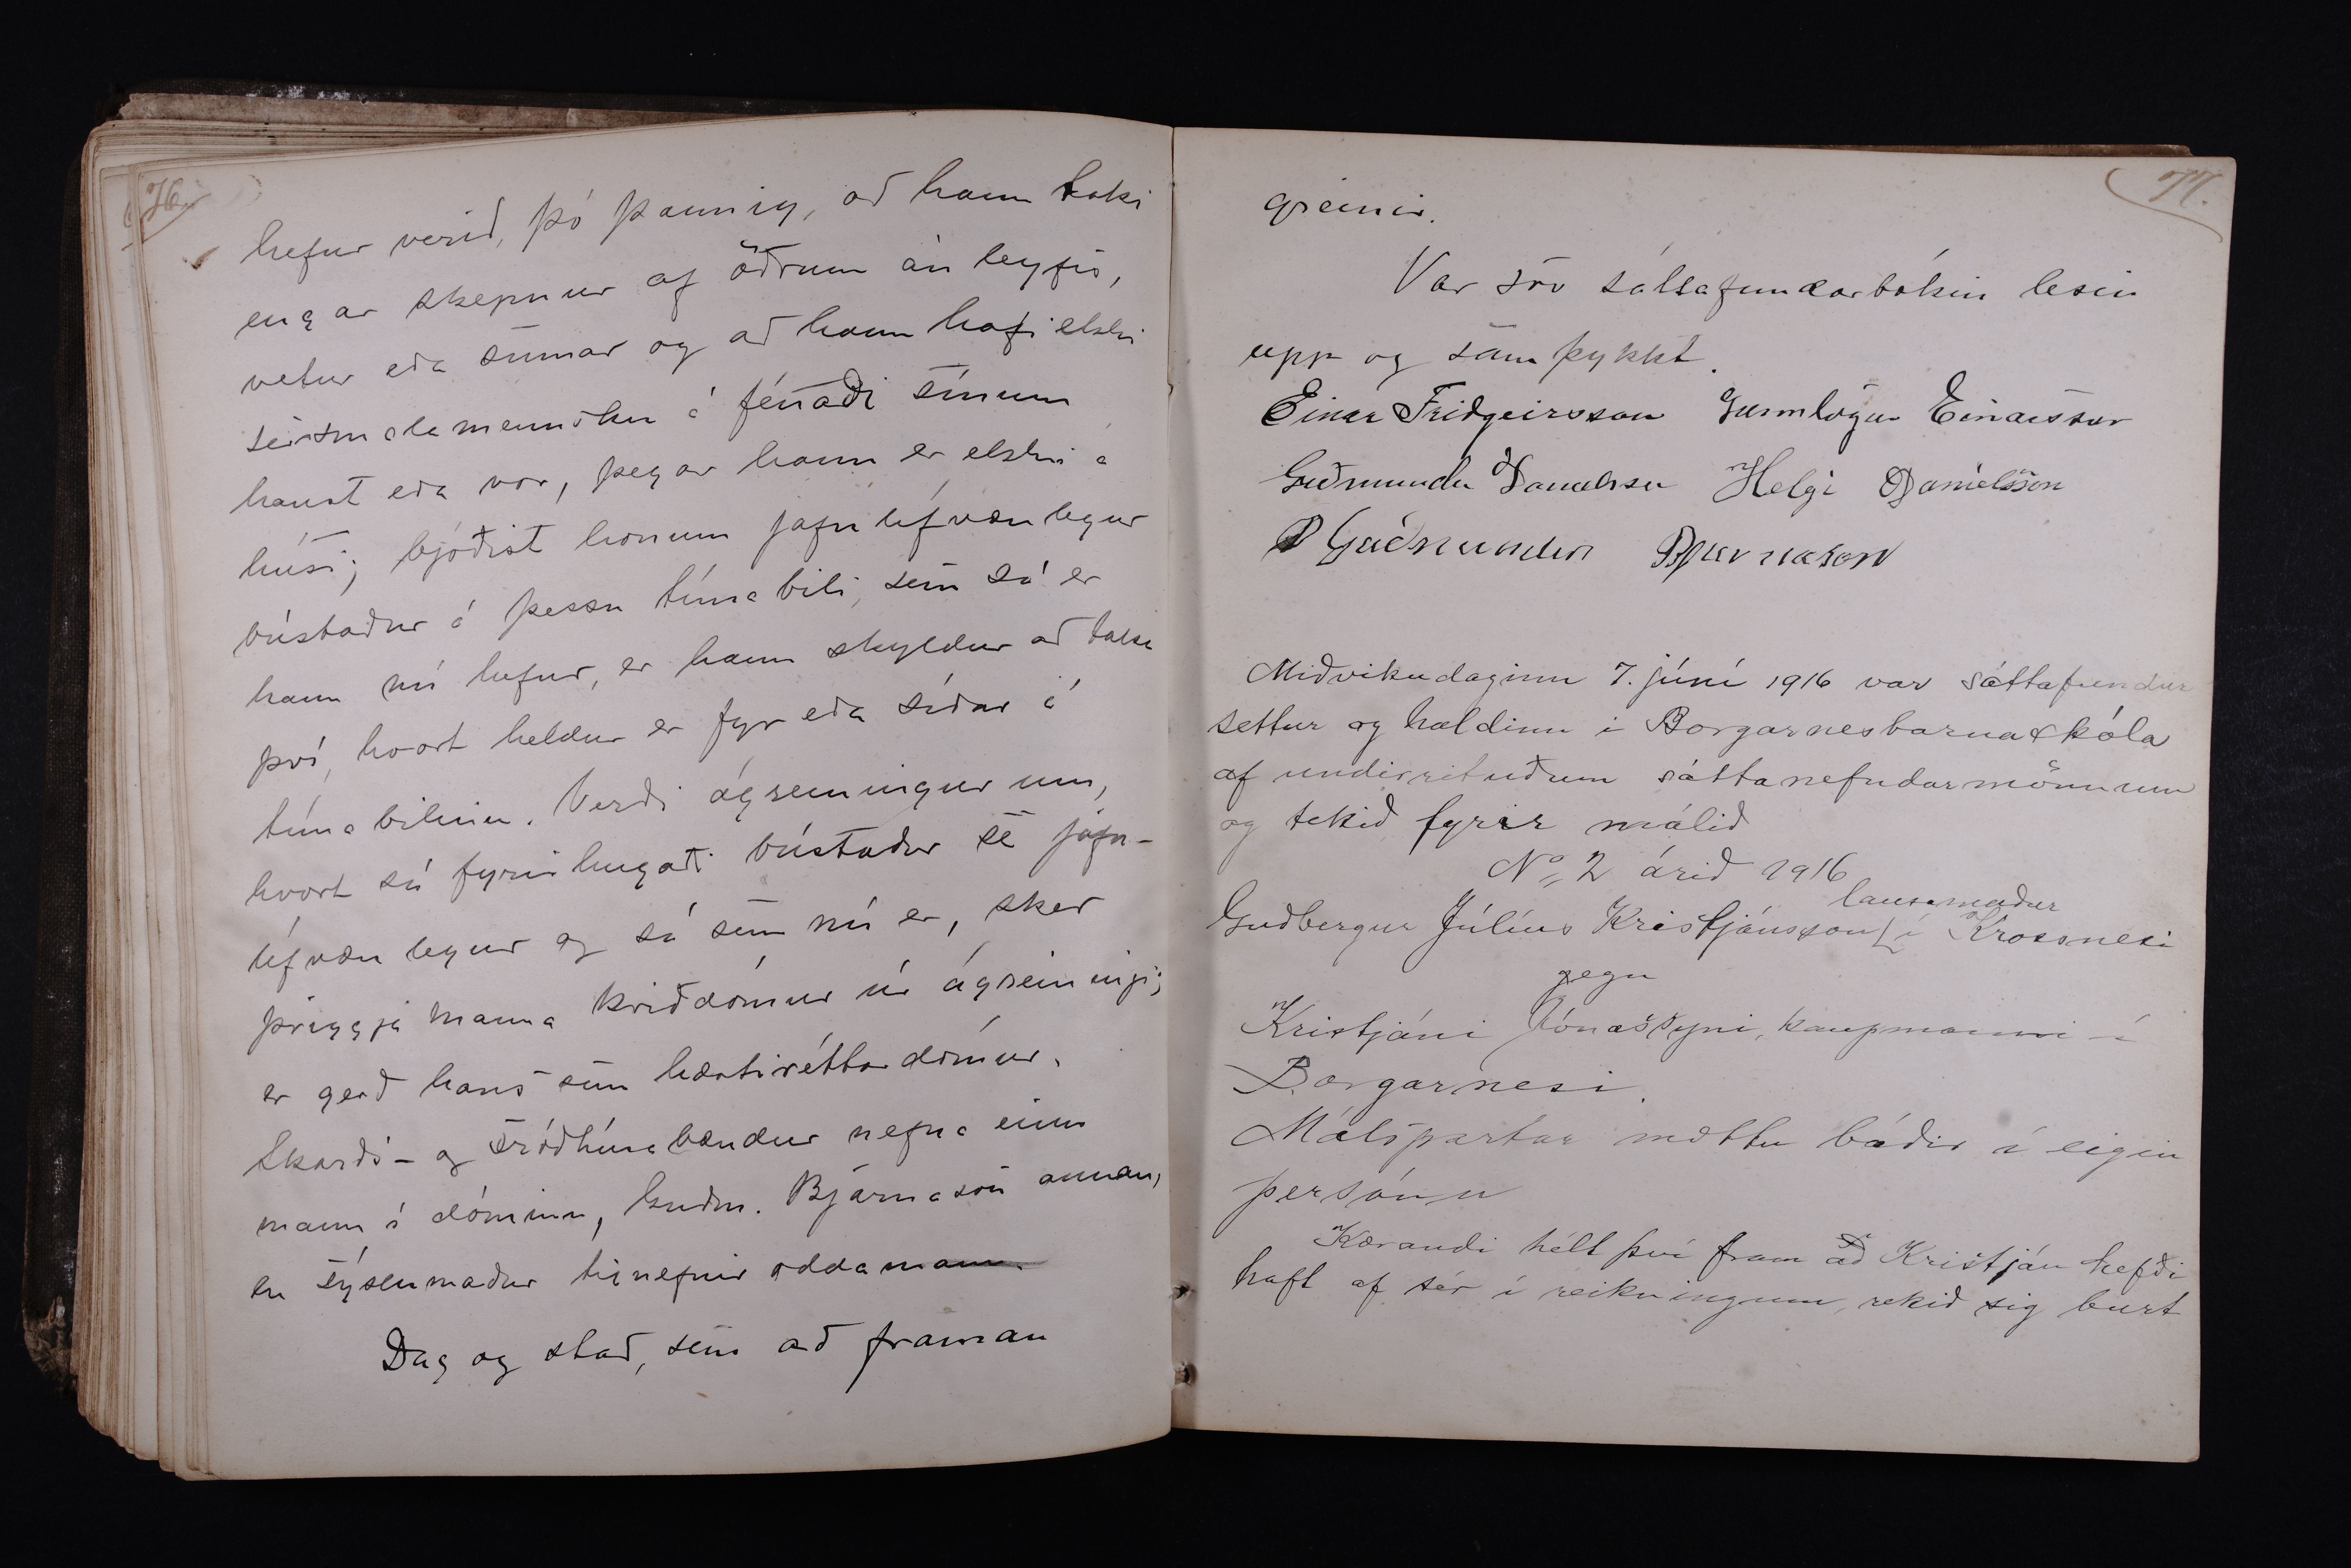 76.
hefur verið, þó þannig, að hann taki
engar skepnur af öðrum án leyfis,
vetur eða sumar og að hann hafi ekki
seirsmalamennsku á fénaði sínum
haust eða vor, þegar hann er ekki á
húsi; bjóðist honum jafn lífvænlegur
bústaður á þessu tímabili, sem sá er
hann nú hefur, er hann skyldur að taka
því, hvort heldur er fyr eða síðar á
tímabilinu. Verði ágreiningur um,
hvort sá fyrirhugaði bústaður sé jafn-
lífvænlegur og sá sem nú er, sker
þriggja manna kviðdómur úr ágreiningi;
er gerð hans sem hæstiréttardómur.
Skarðs- og Tröðhúsabændur nefna einn
mann í dóminn, Guðm. Bjarnason annan,
en sýslumaður tilnefnir oddamann.
Dag og stað, sem að framan
77.
greinir.
Var svo sáttafundarbókin lesin
upp og samþykkt.
Einar Friðgeirsson Gunnlögur Einarsson
Guðmundur Danielsson Helgi Danielsson
Guðmundur Bjarnason
Miðvikudaginn 7. júní 1916 var sáttafundur
settur og haldinn í Borgarnesbarnaskóla
af undirrituðum sáttanefndarmönnum
og tekið fyrir málið
No 2 árið 1916
lausamaður
Guðbergur Júlíus Kristjánsson í Krossnesi
gegn
Kristjáni Jónassyni, kaupmanni í
Borgarnesi.
Málspartar mættu báðir í eigin
persónu
Kærandi hélt því fram að Kristján hefði
haft af sér í reikningum, rekið sig burt